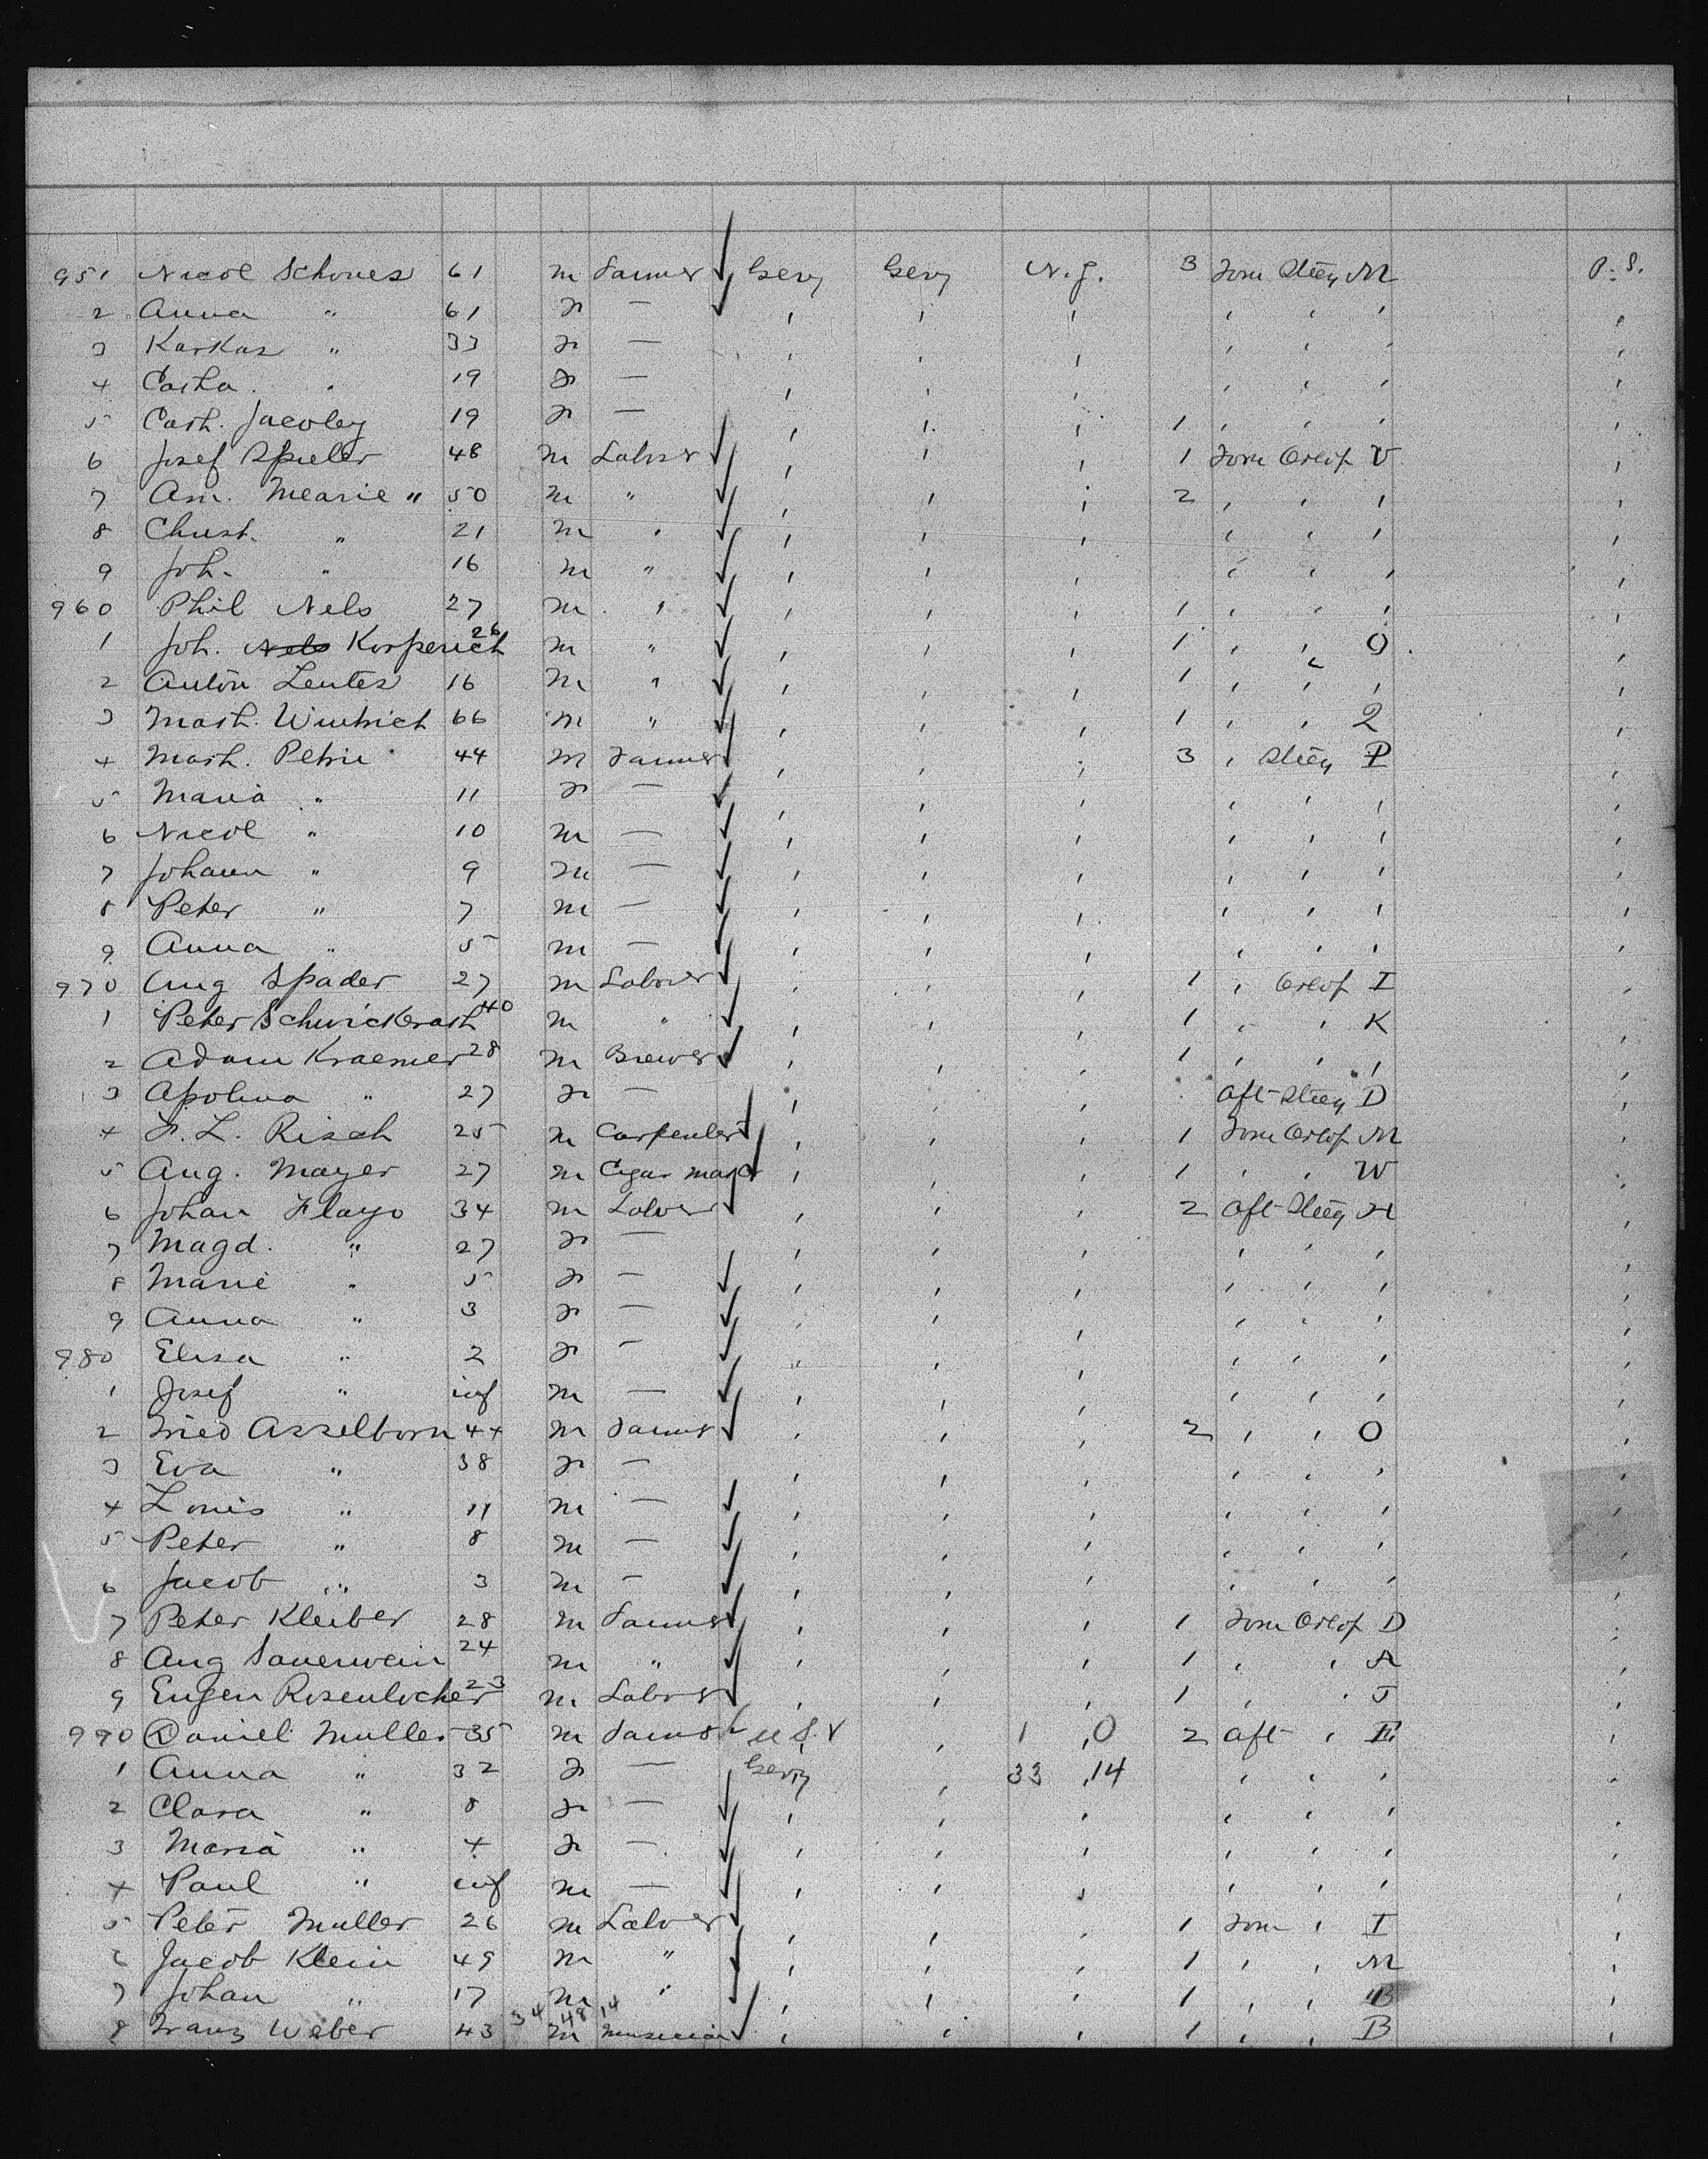 951 Nicol Schoues 61 m Farmer Gery Gery N.Y. 3 Forw Steeg M P.S.
2 Anna " 61 F —
3 33 F —
4 Catha " 19 F —
5 Cath. Jacoby 19 F — 1
6 Josef Spieler 48 m Labver 1 Forw Orlop V
7 Am. Mearie " 50 m " 2
8 Christ. " 21 m "
9 Joh. " 16 m "
960 Phil Nels 27 m " 1
1 Joh. Nels Korperich 26 m " 1 O
2 Anton Lentes 16 m " 1
3 Math. Wintrich 66 m " 1 Q
4 Math. Petrie 44 m Farmer 3 Steeg P
5 Maria " 11 F —
6 Nicol " 10 m —
7 Johann " 9 m —
8 Peter " 7 m —
9 Anna " 5 m —
970 Aug Spader 27 m Labver 1 Orlop I
1 Peter Schwickerath 40 m " 1 K
2 Adam Kraemer 28 m Brewer 1
3 Apolina " 27 F — Aft Steeg D
4 F. L. Risch 25 m Carpenter 1 Forw Orlop M
5 Aug. Mayer 27 m Cigar maker 1 W
6 Johan Flayo 34 m Labver 2 Aft Steeg H
7 Magd. " 27 F —
8 Marie " 5 F —
9 Anna " 3 F —
980 Elisa " 2 F —
1 Josef " inf m —
2 Fried Asselborn 44 m Farmer 2 O
3 Eva " 38 F —
4 Louis " 11 m —
5 Peter " 8 m —
6 Jacob " 3 m —
7 Peter Kleiber 28 m Farmer 1 Forw Orlop D
8 Aug Sauerwein 24 m " 1 A
9 Eugen Rosenlocher 23 m Labver 1 J
990 Daniel Muller 35 m Farmer U S. 1 0 2 Aft E
1 Anna " 32 F — Gery 33 14
2 Clara " 8 F —
3 Maria " 4 F —
4 Paul " inf m —
5 Peter Muller 26 m Labver 1 Forw I
6 Jacob Klein 49 m " 1 M
7 Johan " 17 m " 1 B
34 48 14
8 Franz Weber 43 m Musician 1 B